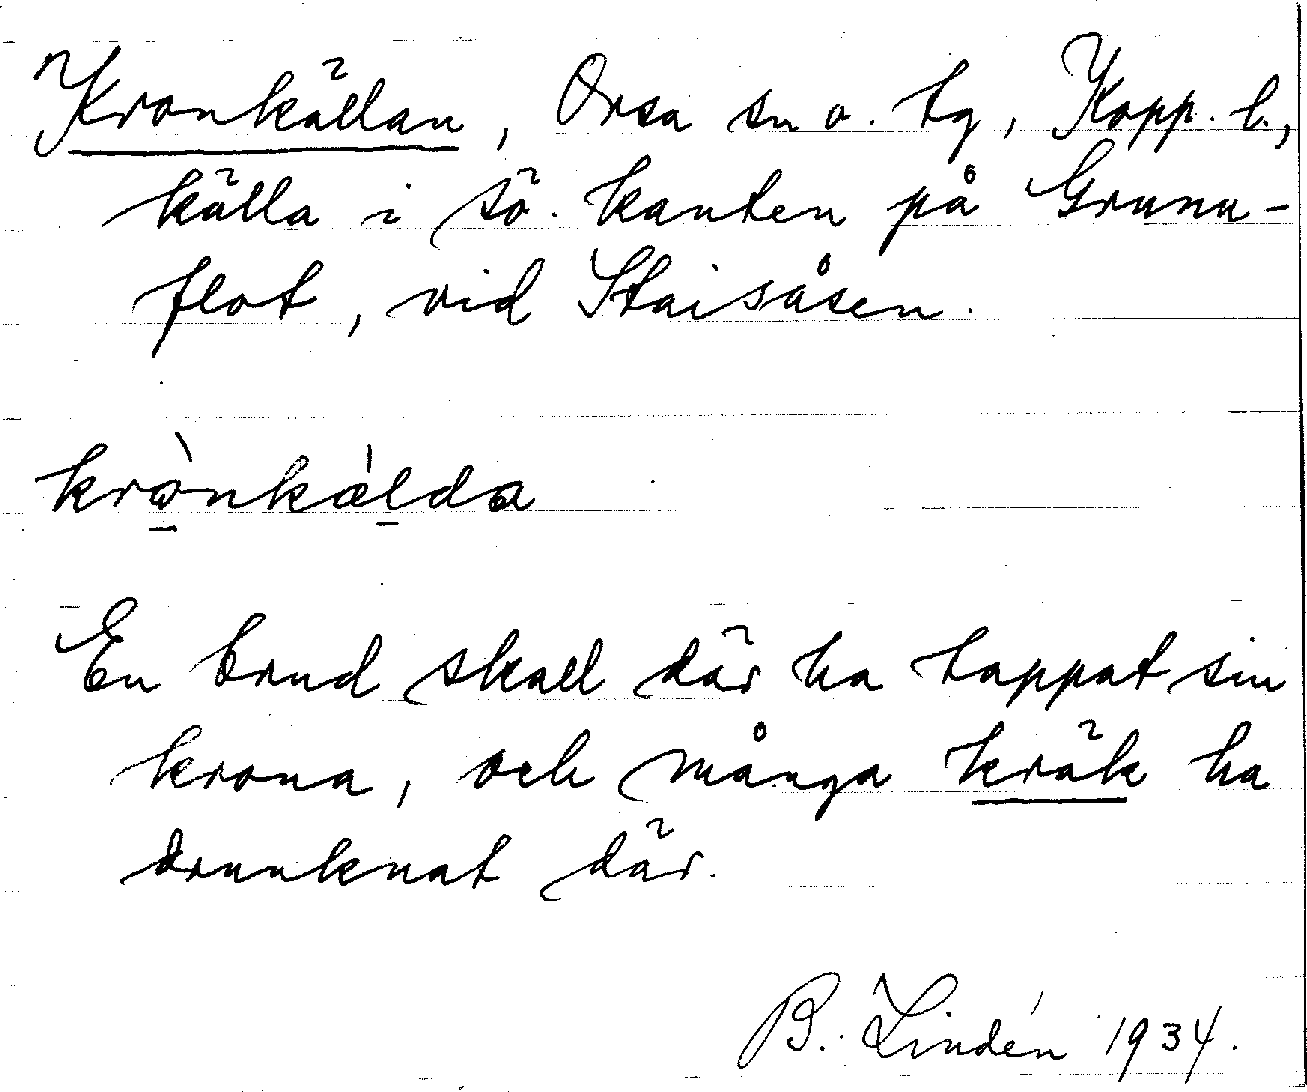 Kronkällan, Orsa sn o. tg, Kopp. l.,
källa i sö. kanten på Grunu-
flot, vid Staisåsen.
krònkàlda
En brud skall där ha tappat sin
krona, och många kräk ha
drunknat där.
B. Lindén 1934.